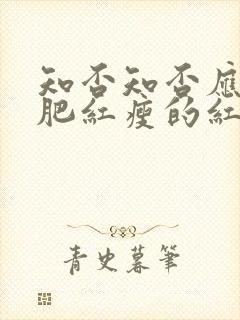 知否知否應
肥紅瘦的紅
青史暮筆